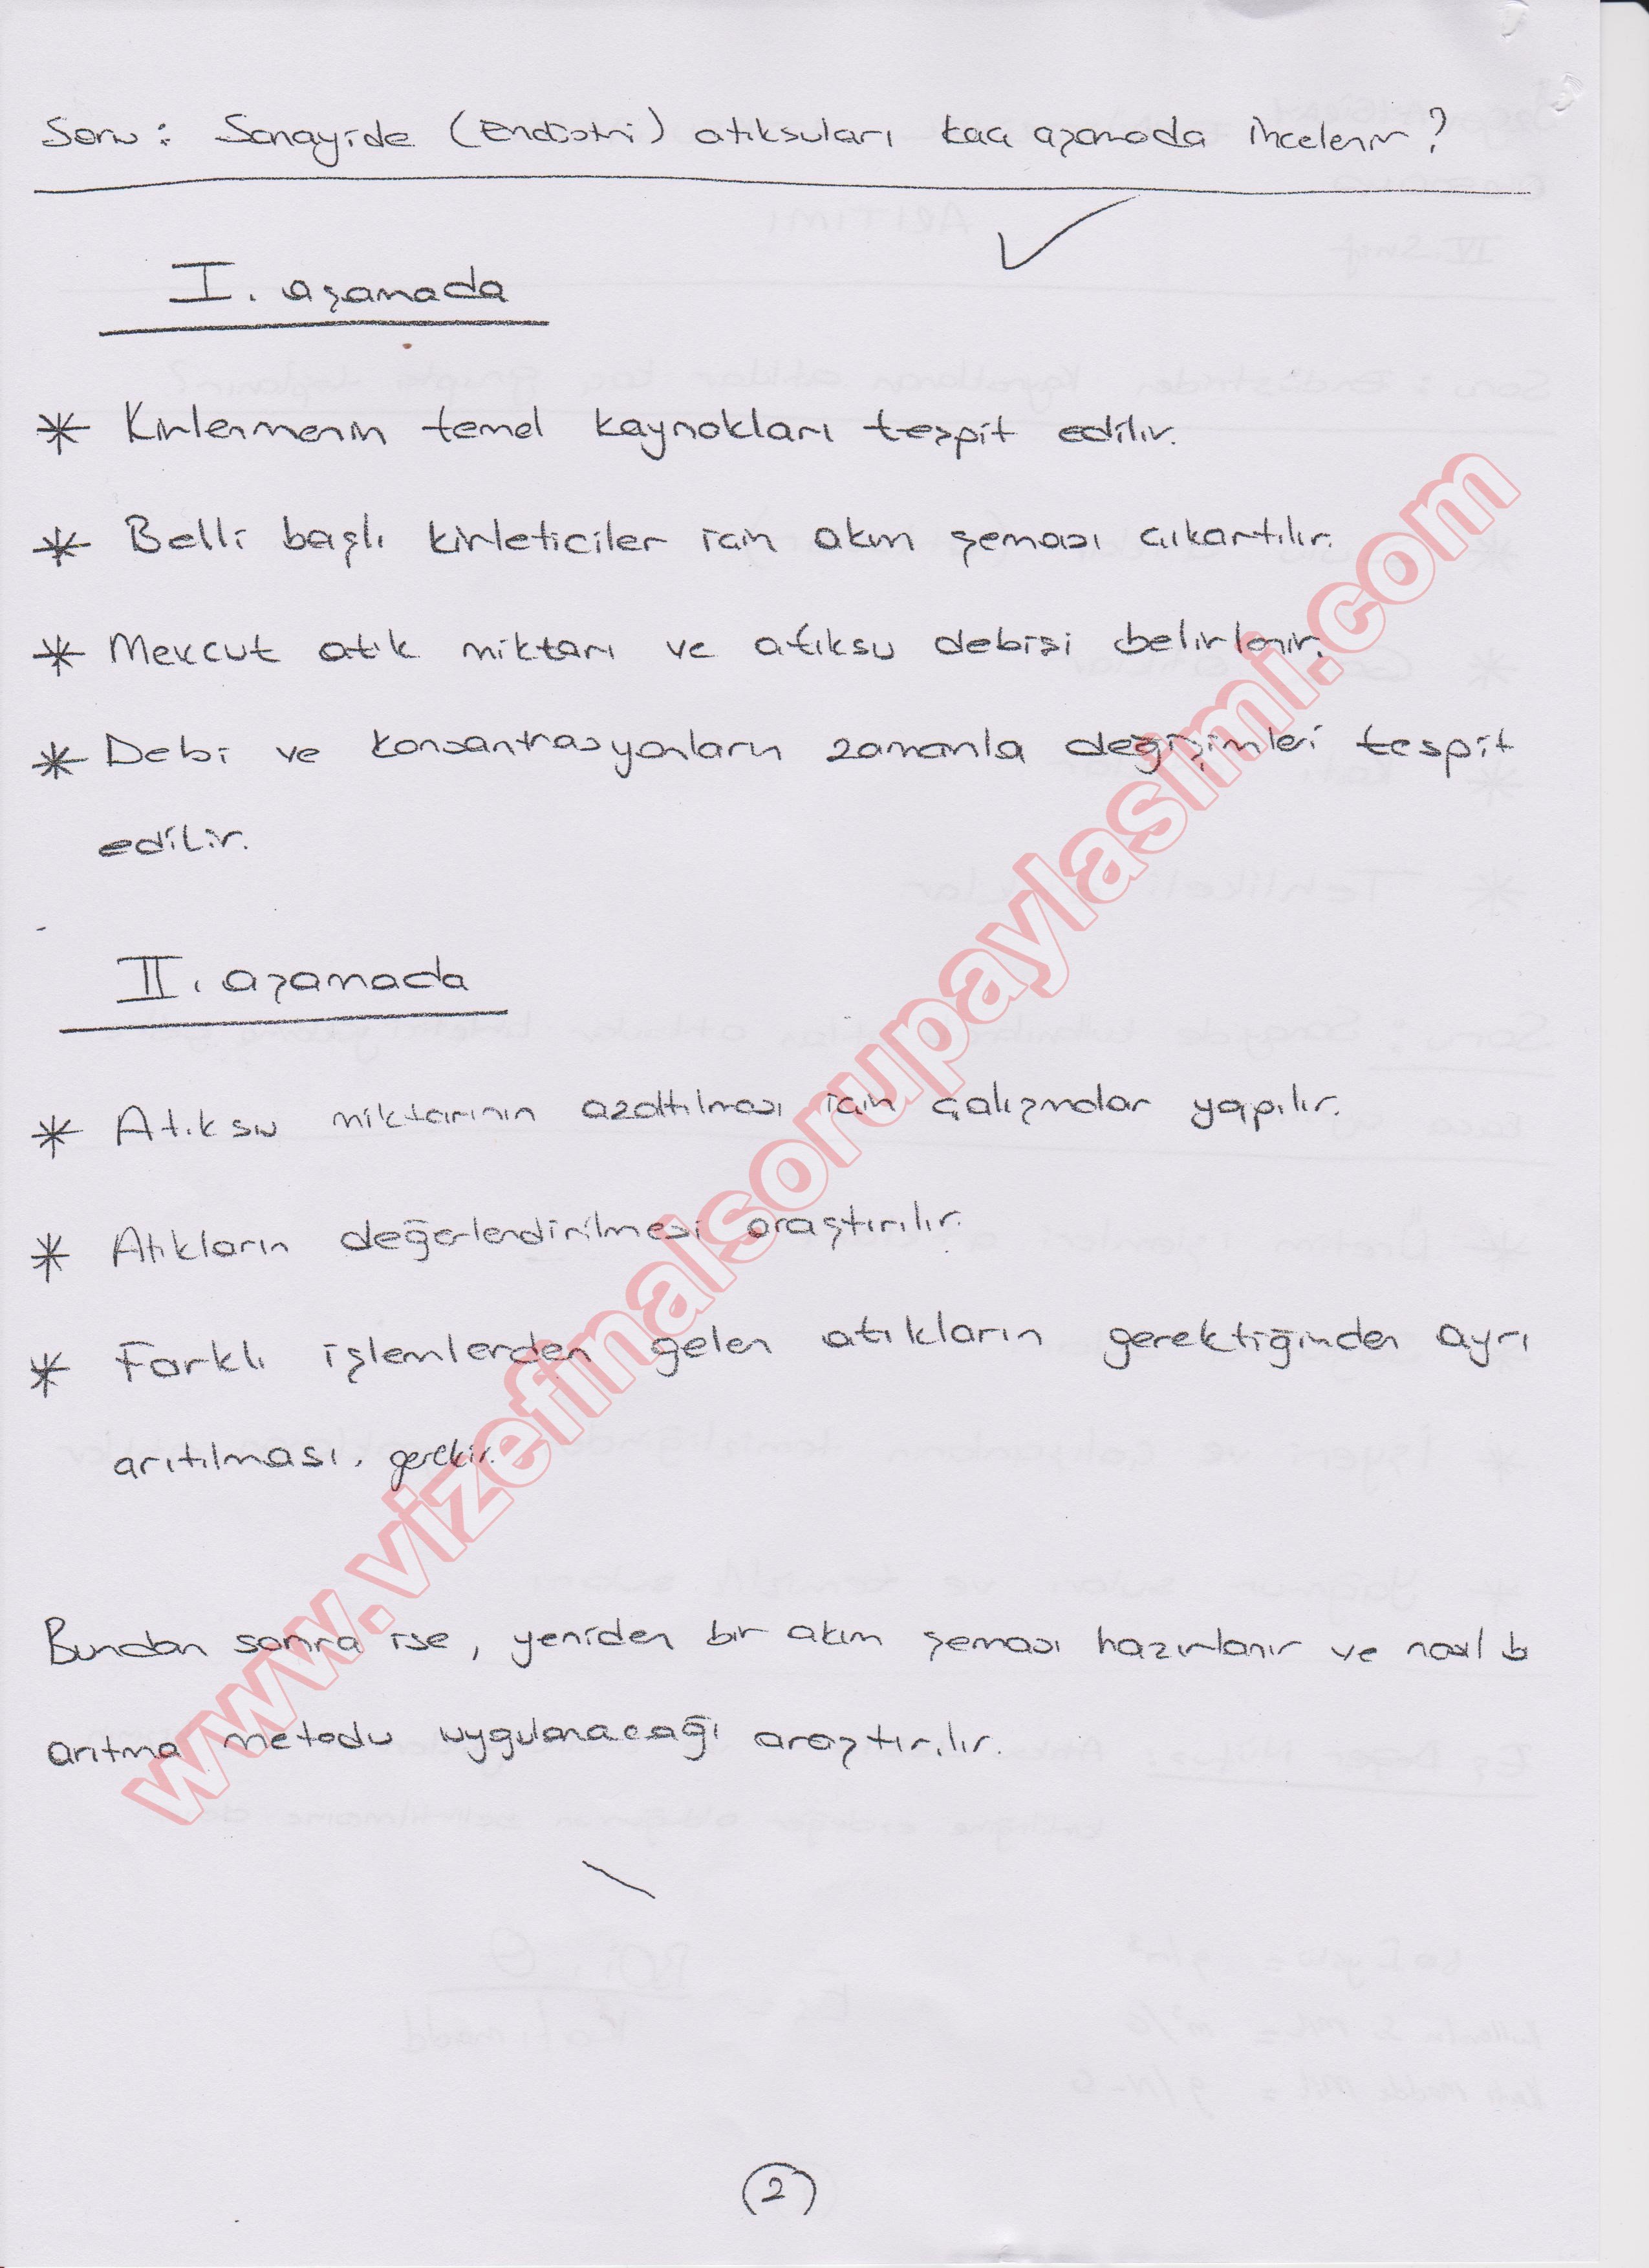 Soru: Sanayide (Endüstri) atıksuları kaç aşamada incelenir?
I. aşamada
* Kirlenmenin temel kaynakları tespit edilir.
* Belli başlı kirleticiler için akım şeması çıkartılır.
* Mevcut atık miktarı ve atıksu debisi belirlenir.
* Debi ve konsantrasyonların zamanla değişimleri tespit
edilir.
II. aşamada
* Atıksu miktarının azaltılması için çalışmalar yapılır.
* Atıkların değerlendirilmesi araştırılır.
* Farklı işlemlerden gelen atıkların gerektiğinden ayrı
arıtılması. gerekir.
Bundan sonra ise, yeniden bir akım şeması hazırlanır ve nasıl b
arıtma metodu uygulanacağı araştırılır.
2
www.vizefinalsorupaylasimi.com